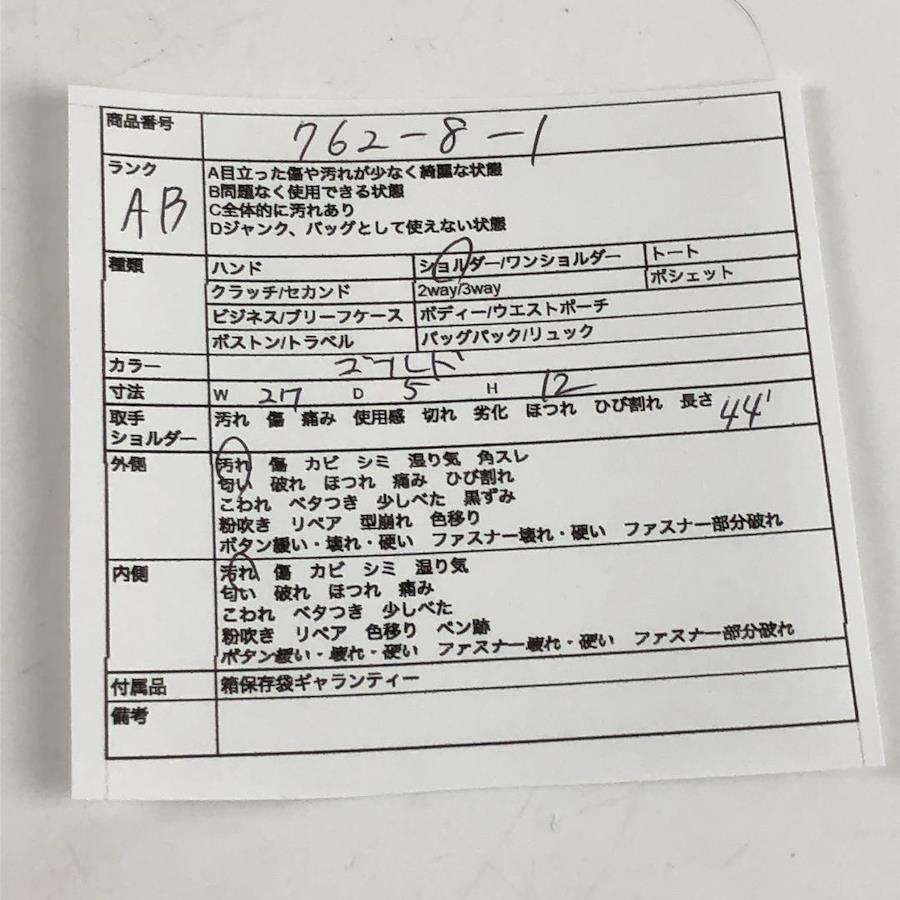 商品番号 762-8-1
ランク AB
A目立った傷や汚れが少なく綺麗な状態
B問題なく使用できる状態
C全体的に汚れあり
Dジャンク、バッグとして使えない状態
種類 ハンド ショルダー/ワンショルダー トート
クラッチ/セカンド 2way/3way ポシェット
ビジネス/ブリーフケース ボディー/ウエストポーチ
ボストン/トラベル バッグパック/リュック
カラー ゴールド
寸法 W 217 D 5 H 12
取手 汚れ 傷 痛み 使用感 切れ 劣化 ほつれ ひび割れ 長さ 44'
ショルダー
外側 汚れ 傷 カビ シミ 湿り気 角スレ
匂い 破れ ほつれ 痛み ひび割れ
こわれ ベタつき 少しべた 黒ずみ
粉吹き リペア 型崩れ 色移り
ボタン緩い・壊れ・硬い ファスナー壊れ・硬い ファスナー部分破れ
内側 汚れ 傷 カビ シミ 湿り気
匂い 破れ ほつれ 痛み
こわれ ベタつき 少しべた
粉吹き リペア 色移り ペン跡
ボタン緩い・壊れ・硬い ファスナー壊れ・硬い ファスナー部分破れ
付属品 箱保存袋ギャランティー
備考